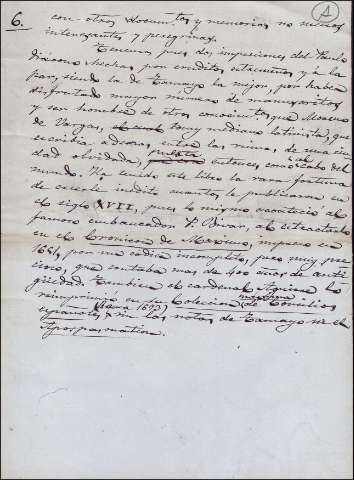 6. con otros documentos y memorias no menos (A)
interesantes y peregrinas.
Tenemos, pues, dos impresiones del Paulo
diácono hechas por eruditos extremeños y á la
par, siendo la de Tamayo la mejor, por haber
disfrutado mayor número de manuscritos
y ser hombre de otros conocimientos que Moreno
de Vargas, muy mediano latinista, que
escribia á deseo, entre las ruinas, de una ciu
dad olvidada, entonces del
mundo. Ha tenido este libro la rara fortuna
de creerle inédito cuantos le publicaron en
el siglo XVII, pues lo mismo aconteció al
famoso embaucador P. Bivar, al estractarlo
en el Cronicon de Maximo, impreso en
1651, por un códice incompleto, pero muy pre
cioso, que contaba mas de 400 años de anti
güedad. Tambien el cardenal Aguirre lo
reimprimió en su Coleccion maxima de Concilios
españoles (Roma 1693) sin las notas de Tamayo ni el